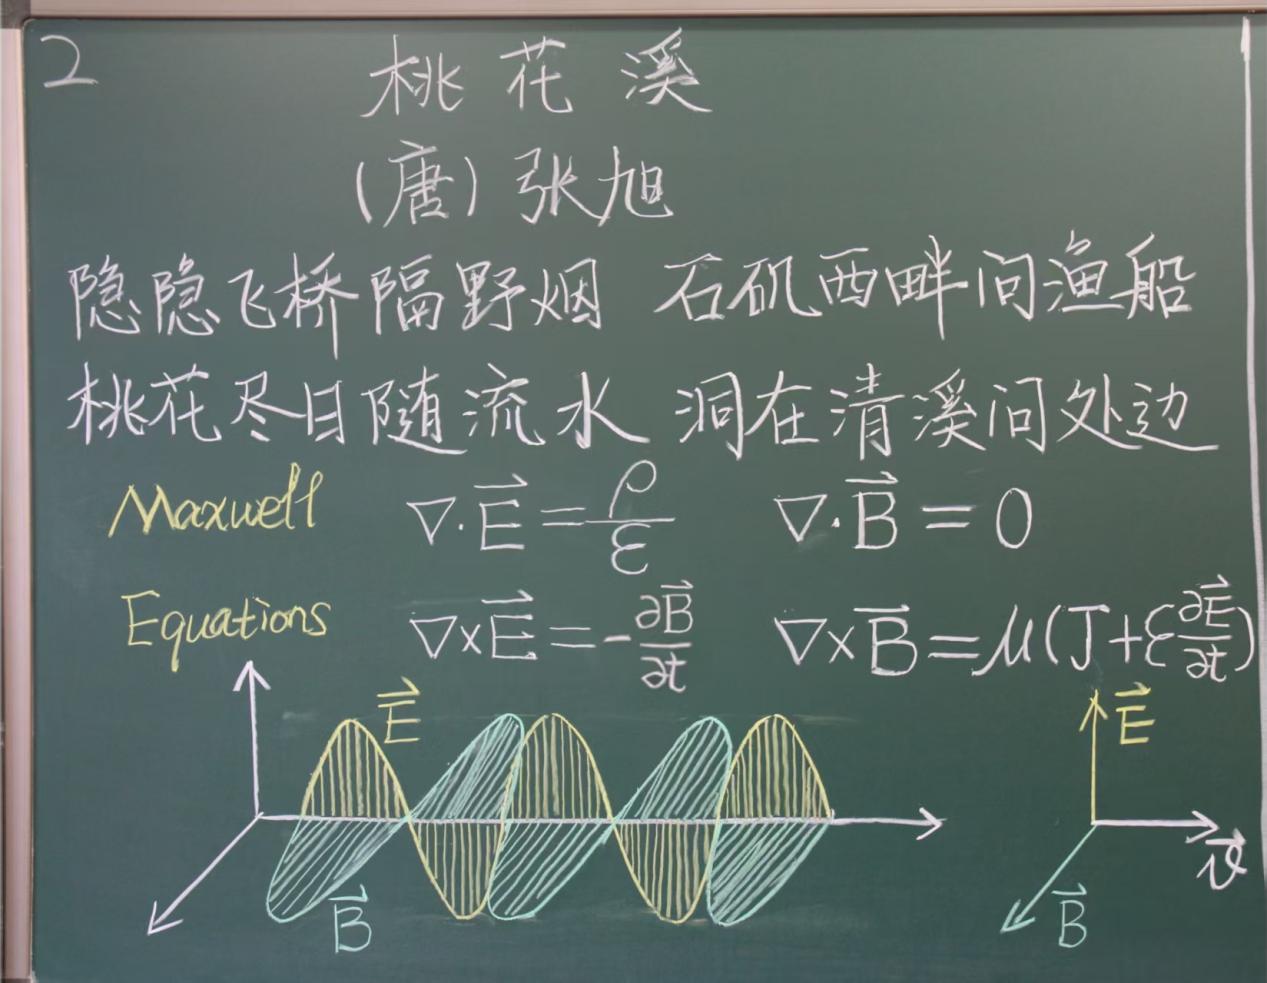 2
桃花溪
(唐) 张旭
隐隐飞桥隔野烟 石矶西畔问渔船
桃花尽日随流水 洞在清溪问处边
Maxwell ∇·E⃗ = ρ/ε ∇·B⃗ = 0
Equations ∇×E⃗ = -∂B⃗/∂t ∇×B⃗ = μ(J+ε∂E⃗/∂t)
E⃗ E⃗
v⃗
B⃗ B⃗